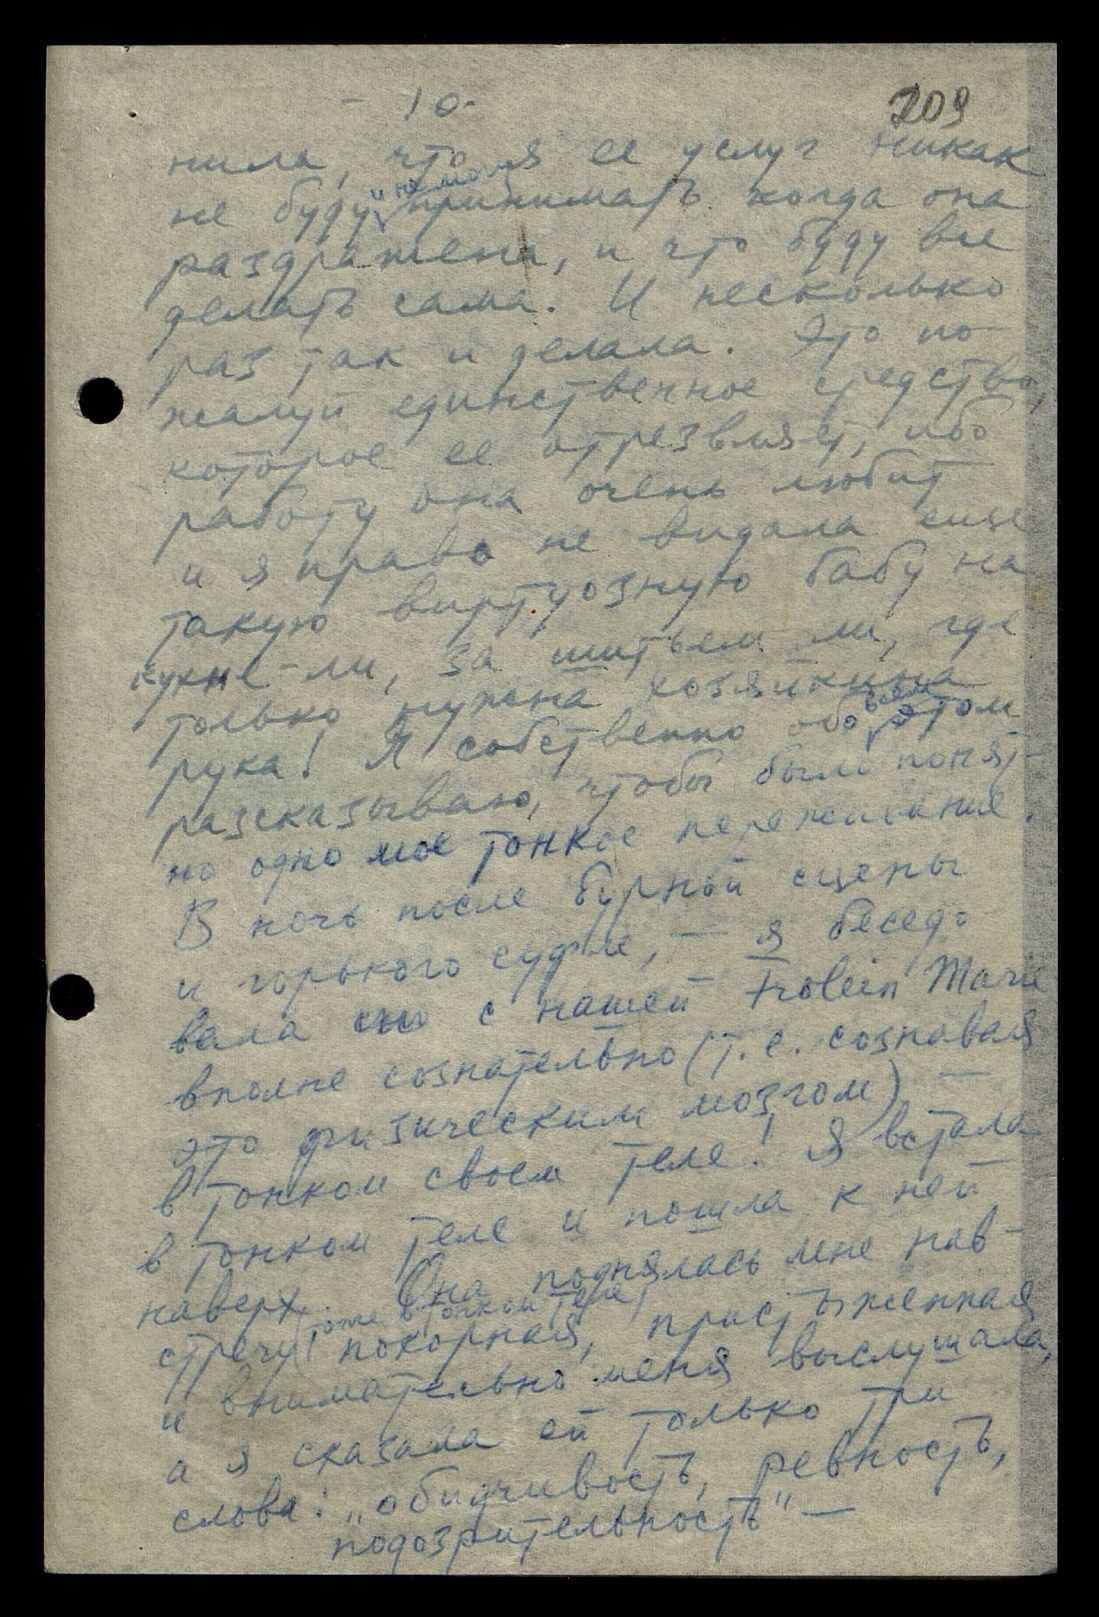 - 10 -
209
нила, что я ее услуг никак
не буду и не могу принимать когда она
раздражена, и что буду все
делать сама. И несколько
раз так и делала. Это по-
жалуй единственное средство,
которое ее отрезвляет, ибо
работу она очень любит
и я право не видала еще
такую виртуозную бабу на
кухне-ли, за шитьем ли, где
только нужна хозяйкина
рука! Я собственно обо всем этом
разсказываю, чтобы было понят-
но одно мое тонкое переживание.
В ночь после бурной сцены
и горького суфле, — я беседо-
вала с нашей Frolein Marie
вполне сознательно (т.е. сознавая
это физическим мозгом) —
в тонком своем теле! Я встала
в тонком теле и пошла к ней
наверх. Она поднялась мне нав-
стречу (тоже в тонком теле) покорная, пристыженная
и внимательно меня выслушала,
а я сказала ей только три
слова: „обидчивость, ревность,
подозрительность" —